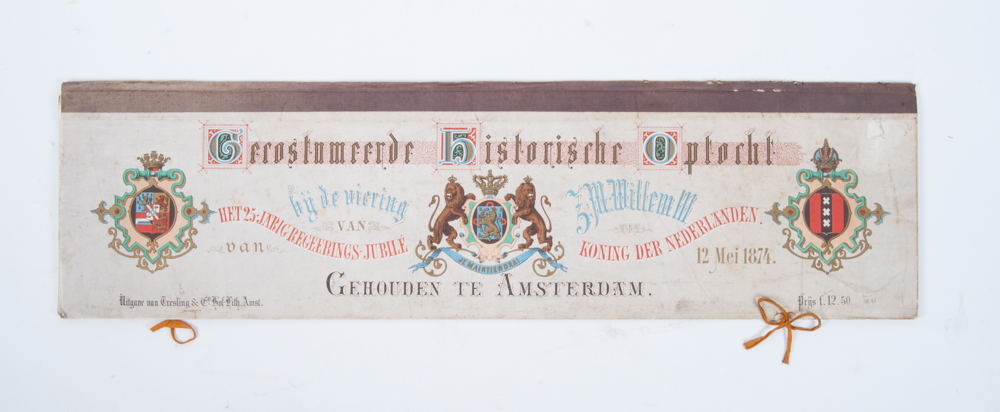 Gecostumeerde Historische Optocht
bij de viering
VAN
HET 25-JARIG REGEERINGS-JUBILÉ
van
Z.M. Willem III
KONING DER NEDERLANDEN.
12 Mei 1874.
JE MAINTIENDRAI
GEHOUDEN TE AMSTERDAM.
Uitgave van Tresling & Co. Hof-Lith. Amst.
Prijs f. 12.50